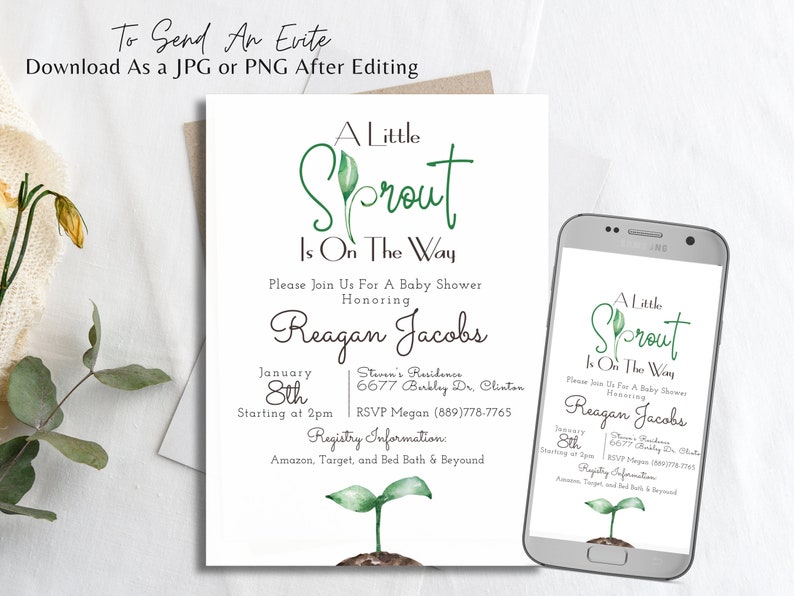 To Send An Evite
Download As a JPG or PNG After Editing
A Little
Sprout
Is On The Way
Please Join Us For A Baby Shower
Honoring
Reagan Jacobs
January
8th
Starting at 2pm
Steven's Residence
6677 Berkley Dr, Clinton
RSVP Megan (889)778-7765
Registry Information:
Amazon, Target, and Bed Bath & Beyound
SAMSUNG
A Little
Sprout
Is On The Way
Please Join Us For A Baby Shower
Honoring
Reagan Jacobs
January
8th
Starting at 2pm
Steven's Residence
6677 Berkley Dr, Clinton
RSVP Megan (889)778-7765
Registry Information:
Amazon, Target, and Bed Bath & Beyound